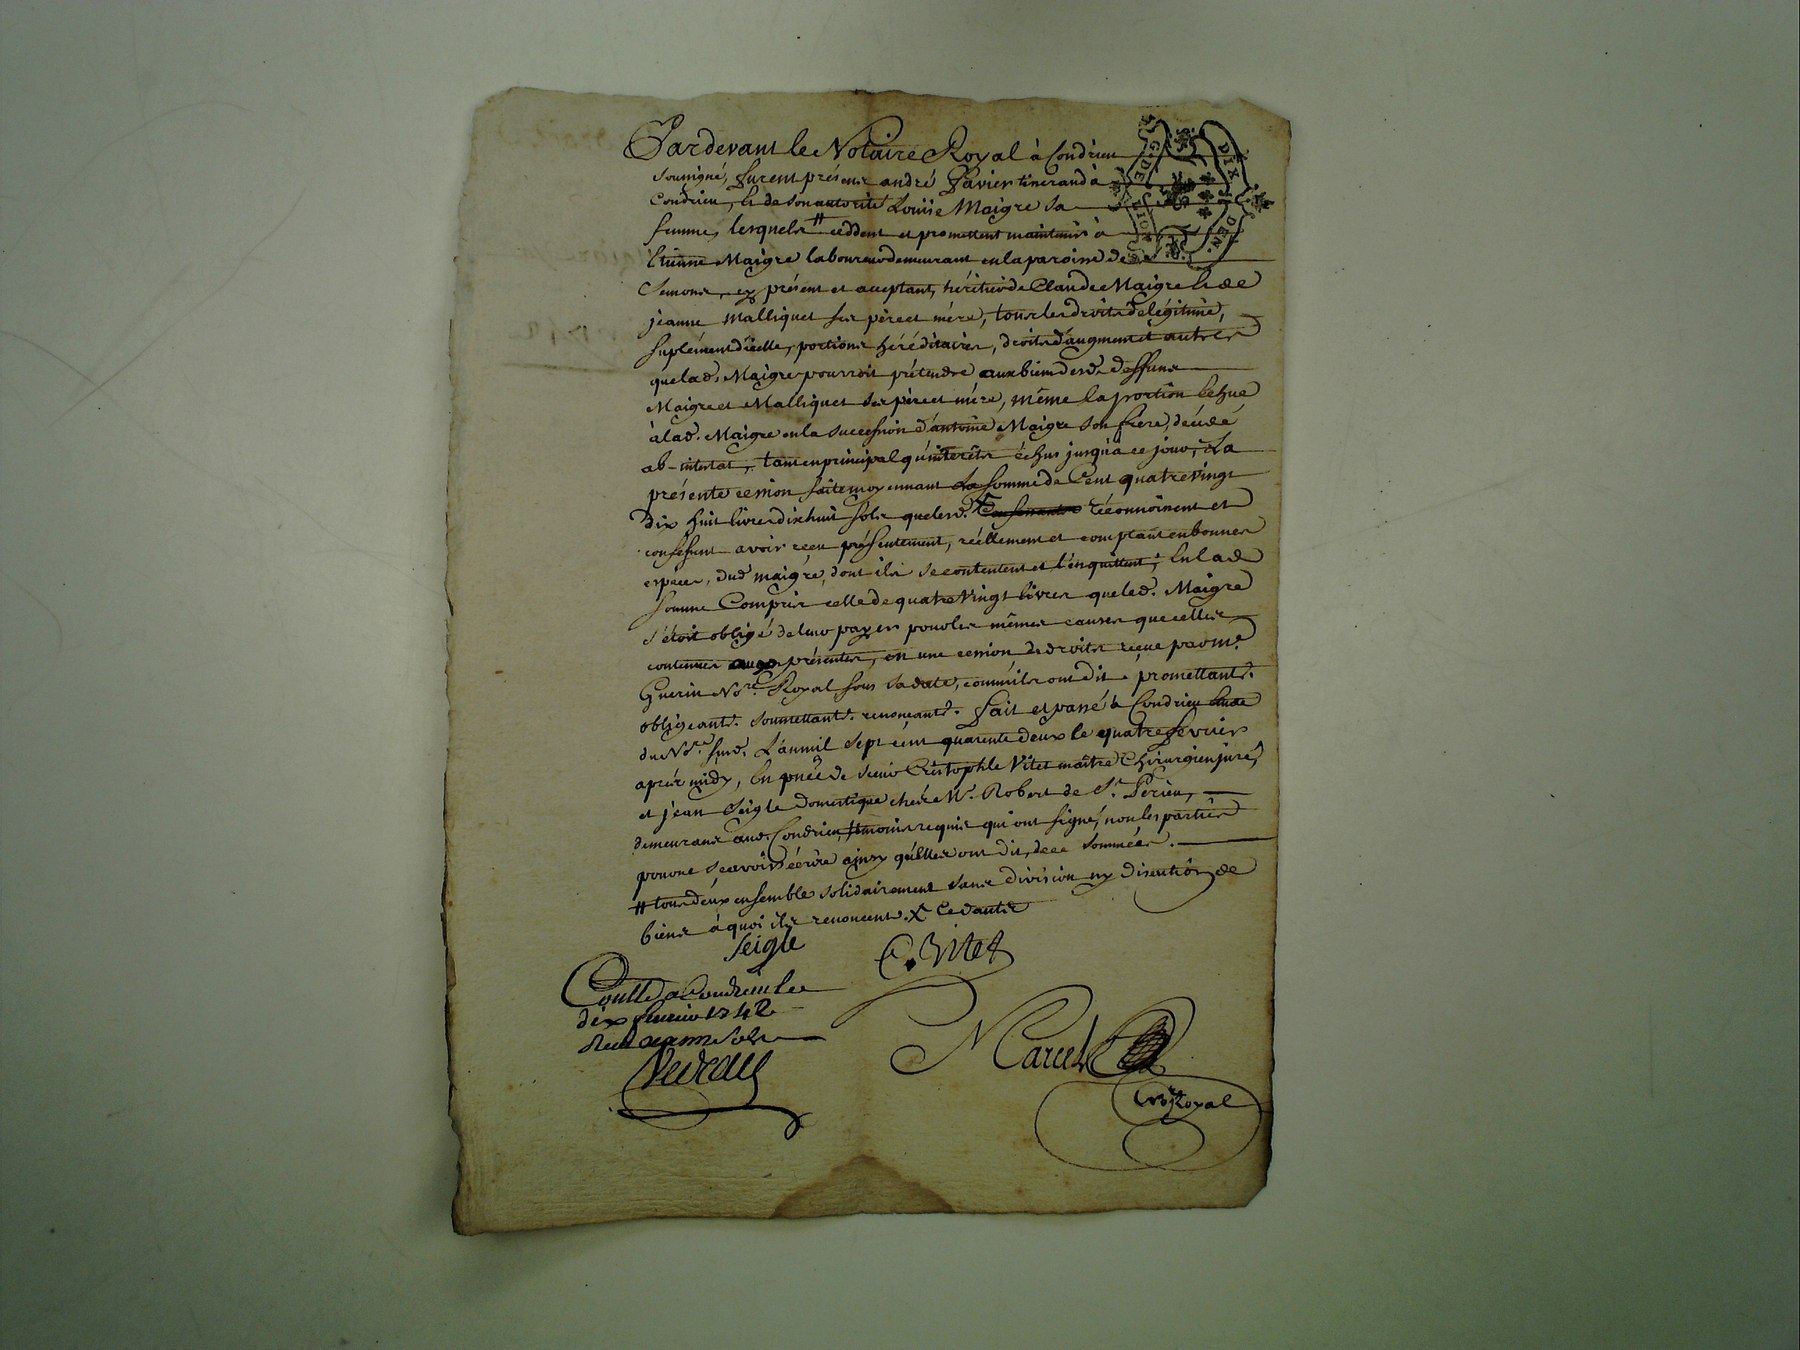 Pardevant le Notaire Royal à Condrieu
soussigné, furent présens andré Favier tisserand à
Condrieu, & de son autorité Louise Maigre sa
femme, lesquels # cèddent et promettent maintenir à
Etienne Maigre laboureur demeurant en la paroisse de
Semons, cy présent et acceptant, héritier de Claude Maigre & de
jeanne Malliquet ses père et mère, tous les droits de légitime,
suplément d'icelle, portions héréditaires, droits d'augment et autres
que lad. Maigre pourroit prétendre aux biens desd. deffuns
Maigre et Malliquet ses père et mère, même la portion echue
à lad. Maigre en la succession d'antoine Maigre son frère, décédé
ab-intestat, tant en principal qu'intérêts échus jusqu'à ce jour, La
présente cession faite moyennant la somme de Cent quatre vingt
dix huit livres dix huit sols que lesd. X reconnoissent et
confessent avoir reçu présentement, réellement et comptant en bonnes
espèces, dud maigre, dont ils se contentent et l'en quittent; En lad
somme Compris celle de quatre vingt livres que led. Maigre
s'étoit obligé de leur payer pour les mêmes causes que celles
contenues aux présentes, en une cession de droits reçue par me.
Guerin No.re Royal sous sa date, comm'ils ont dit, promettant.
obligeant. soumettant. renonçant. Fait et passé à Condrieu étude
du No.re susd. L'an mil sept cent quarente deux le quatre fevrier
après midy, En pnce de sieur Cristophle Vitet maître Chirurgien juré,
et jean Seigle domestique chés Mr. Robert de St.
demeurans aud. Condrieu, témoins requis qui ont signé, non les parties
pour ne sçavoir écrire ainsy qu'elles ont dit, de ce sommées.
# tous deux ensemble solidairement sans division ny discution de
biens à quoi ils renoncent. X Cedants
Seigle
C. Vitet
Conllé a Condrieu le
dix fevrier 1742
Marcel
No.re Royal